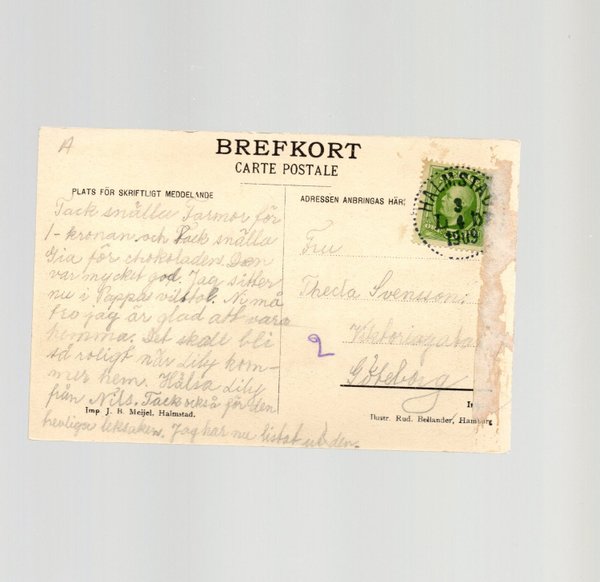 A
BREFKORT
CARTE POSTALE
PLATS FÖR SKRIFTLIGT MEDDELANDE
ADRESSEN ANBRINGAS HÄR:
HALMSTAD
3
1909
Tack snälla Farmor för
1-kronan och Tack snälla
Gia för chokoladen. Den
var mycket god. Jag sitter
nu i Pappa vilstol. Ni må
tro jag är glad att vara
hemma. Det skall bli
så roligt när Lily kom-
mer hem. Hälsa Lily
från Nils. Tack också för den
hevliga leksaken. Jag har nu listat ut den.
Fru
Theda Svensson
Viktoriagatan
2
Göteborg
Imp. J. B. Meijel. Halmstad.
Illustr. Rud. Bellander, Hamburg